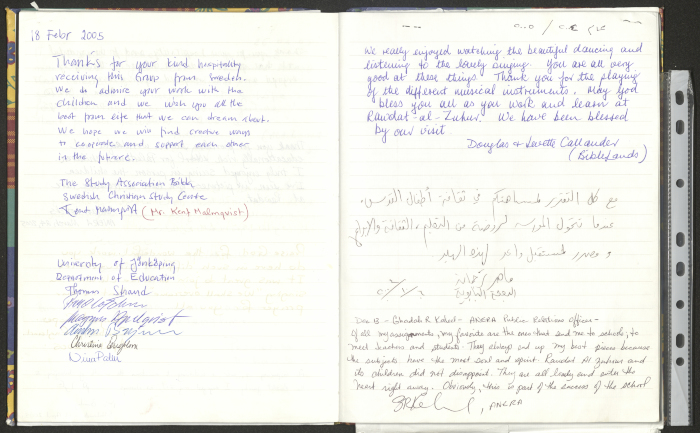 18 Febr 2005
Thanks for your kind hospitality
receiving this Group from Sweden.
We do admire your work with the
children and we wish you all the
best from life that we can dream about.
We hope we will find creative ways
to cooperate and support each other
in the future.
The Study Association Bilda
Swedish Christian Study Centre
Kent Malmqvist (Mr. Kent Malmqvist)
University of Jönköping
Department of Education
Thomas
Christina
Nina
We really enjoyed watching the beautiful dancing and
listening to the lovely singing. You are all very
good at these things. Thank you for the playing
of the different musical instruments. May God
bless you all as you work and learn at
Rawdat-al-Zuhur. We have been blessed
by our visit
Douglas & Lovette Callander
(BibleLands)
مع كل التقدير لمساهمتكم في ثقافة أطفال القدس.
عندما تتحول المدرسة لروضة من التعلم، والثقافة والإبداع
لمستقبل واعد لهذه البلد
ماهر
Dia B - Ghadah R Kahil - ANERA Public Relations Officer -
Of all my assignments, my favorite are the ones that send me to schools, to
meet teachers and students. They always end up my best pieces because
the subjects have the most soul and spirit. Rawdat Al Zuhur and
its children did not disappoint. They are all lovely and enter the
heart right away. Obviously, this is part of the success of the school
, ANERA